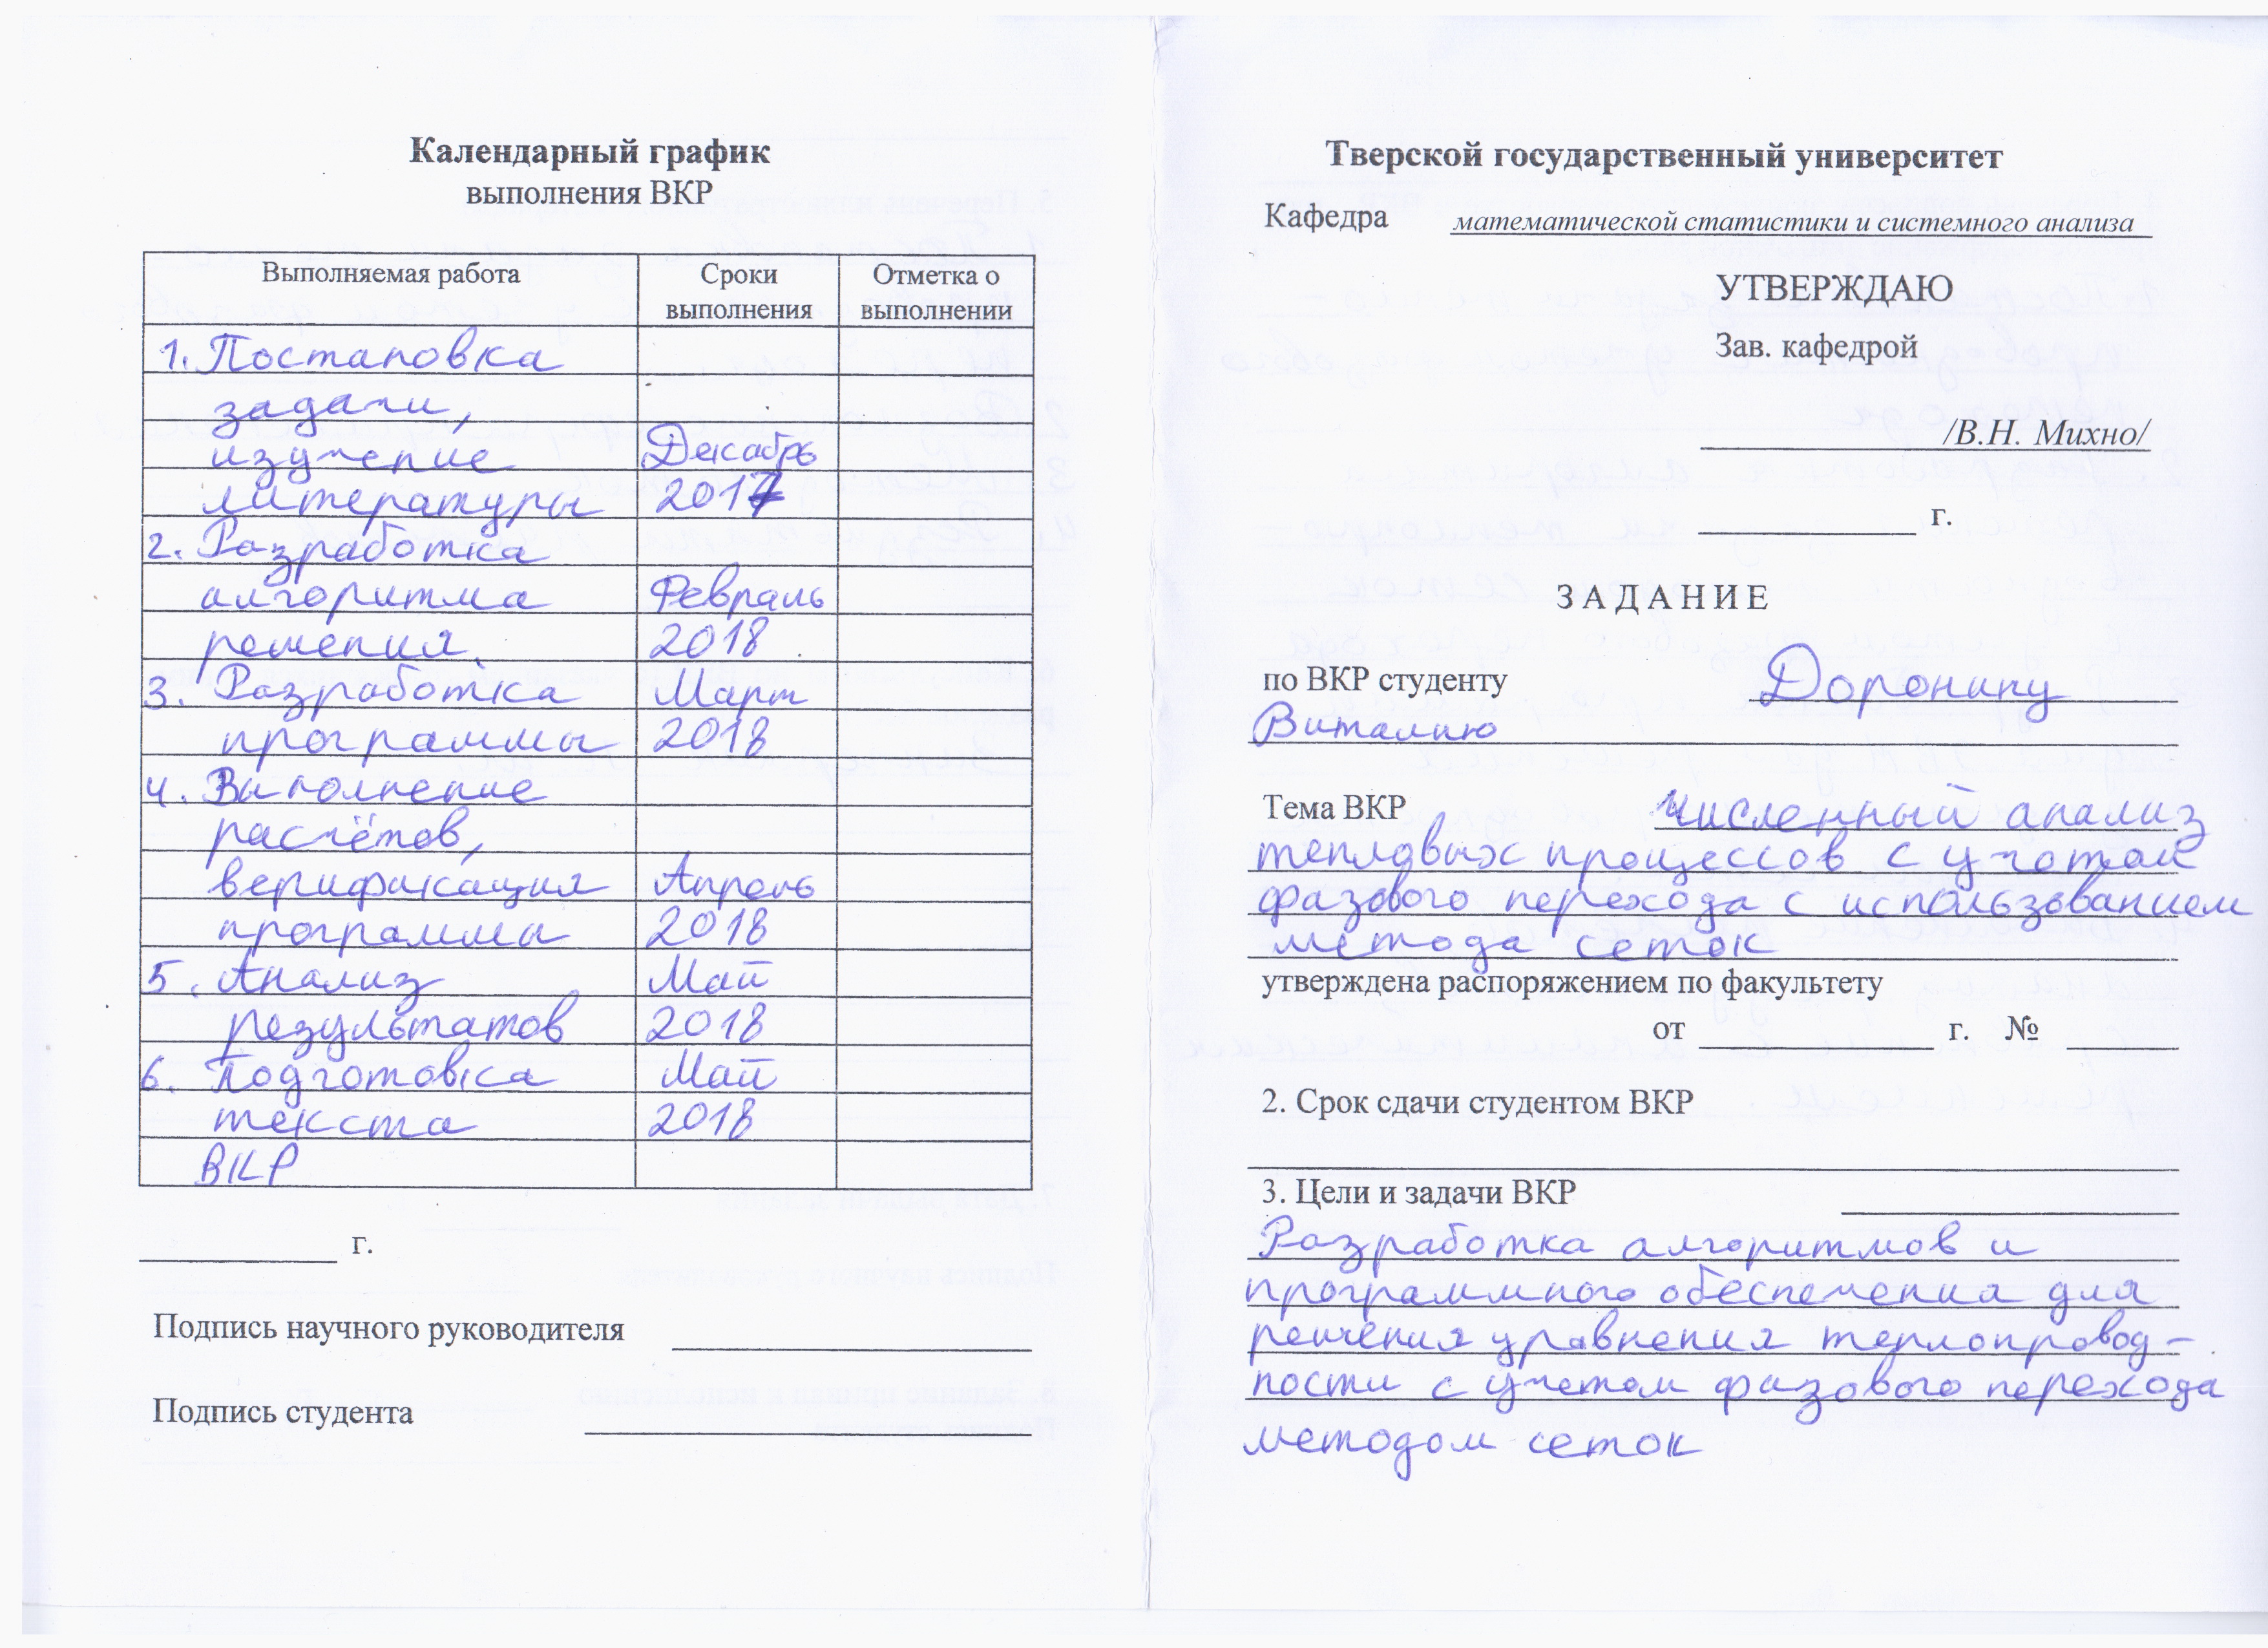 Календарный график
выполнения ВКР
Выполняемая работа
Сроки
выполнения
Отметка о
выполнении
1. Постановка
задачи,
изучение Декабрь
литературы 2017
2. Разработка
алгоритма Февраль
решения. 2018
3. Разработка Март
программы 2018
4. Выполнение
расчётов,
верификация Апрель
программы 2018
5. Анализ Май
результатов 2018
6. Подготовка Май
текста 2018
ВКР
г.
Подпись научного руководителя
Подпись студента
Тверской государственный университет
Кафедра математической статистики и системного анализа
УТВЕРЖДАЮ
Зав. кафедрой
/В.Н. Михно/
г.
ЗАДАНИЕ
по ВКР студенту Доронину
Виталию
Тема ВКР Численный анализ
тепловых процессов с учетом
фазового перехода с использованием
метода сеток
утверждена распоряжением по факультету
от г. №
2. Срок сдачи студентом ВКР
3. Цели и задачи ВКР
Разработка алгоритмов и
программного обеспечения для
решения уравнения теплопровод-
ности с учетом фазового перехода
методом сеток